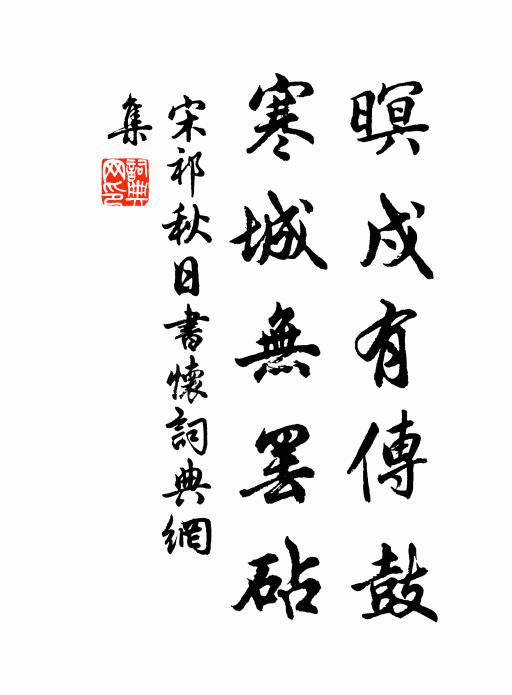 暝戍有傳鼓
寒城無罷砧
宋祁秋日書懷詞典網
集
詞典
网印